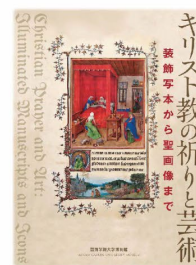 キリスト教の祈りと芸術
装飾写本から聖画像まで
Christian Prayer and Art:
Illuminated Manuscripts and Icons
西南学院大学博物館